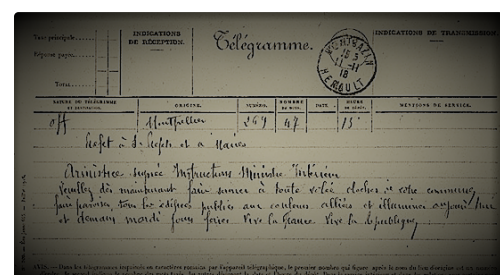 Taxe principale
INDICATIONS DE RÉCEPTION.
Télégramme.
INDICATIONS DE TRANSMISSION.
Réponse payée
Total
MONTBAZIN
11-11
18
HERAULT
NATURE DU TÉLÉGRAMME
ORIGINE.
NUMÉRO.
NOMBRE DE MOTS.
DATE.
HEURE DE DÉPÔT.
MENTIONS DE SERVICE.
Off Montpellier 47 15
Préfet à S. Préfets et à Maires
Armistice signé Instructions Ministre Intérieur
Veuillez dès maintenant faire sonner à toute volée cloches de votre commune
faire pavoiser tous les édifices publics aux couleurs alliées et illuminer aujourd'hui
et demain mardi jour férié Vive la France Vive la république